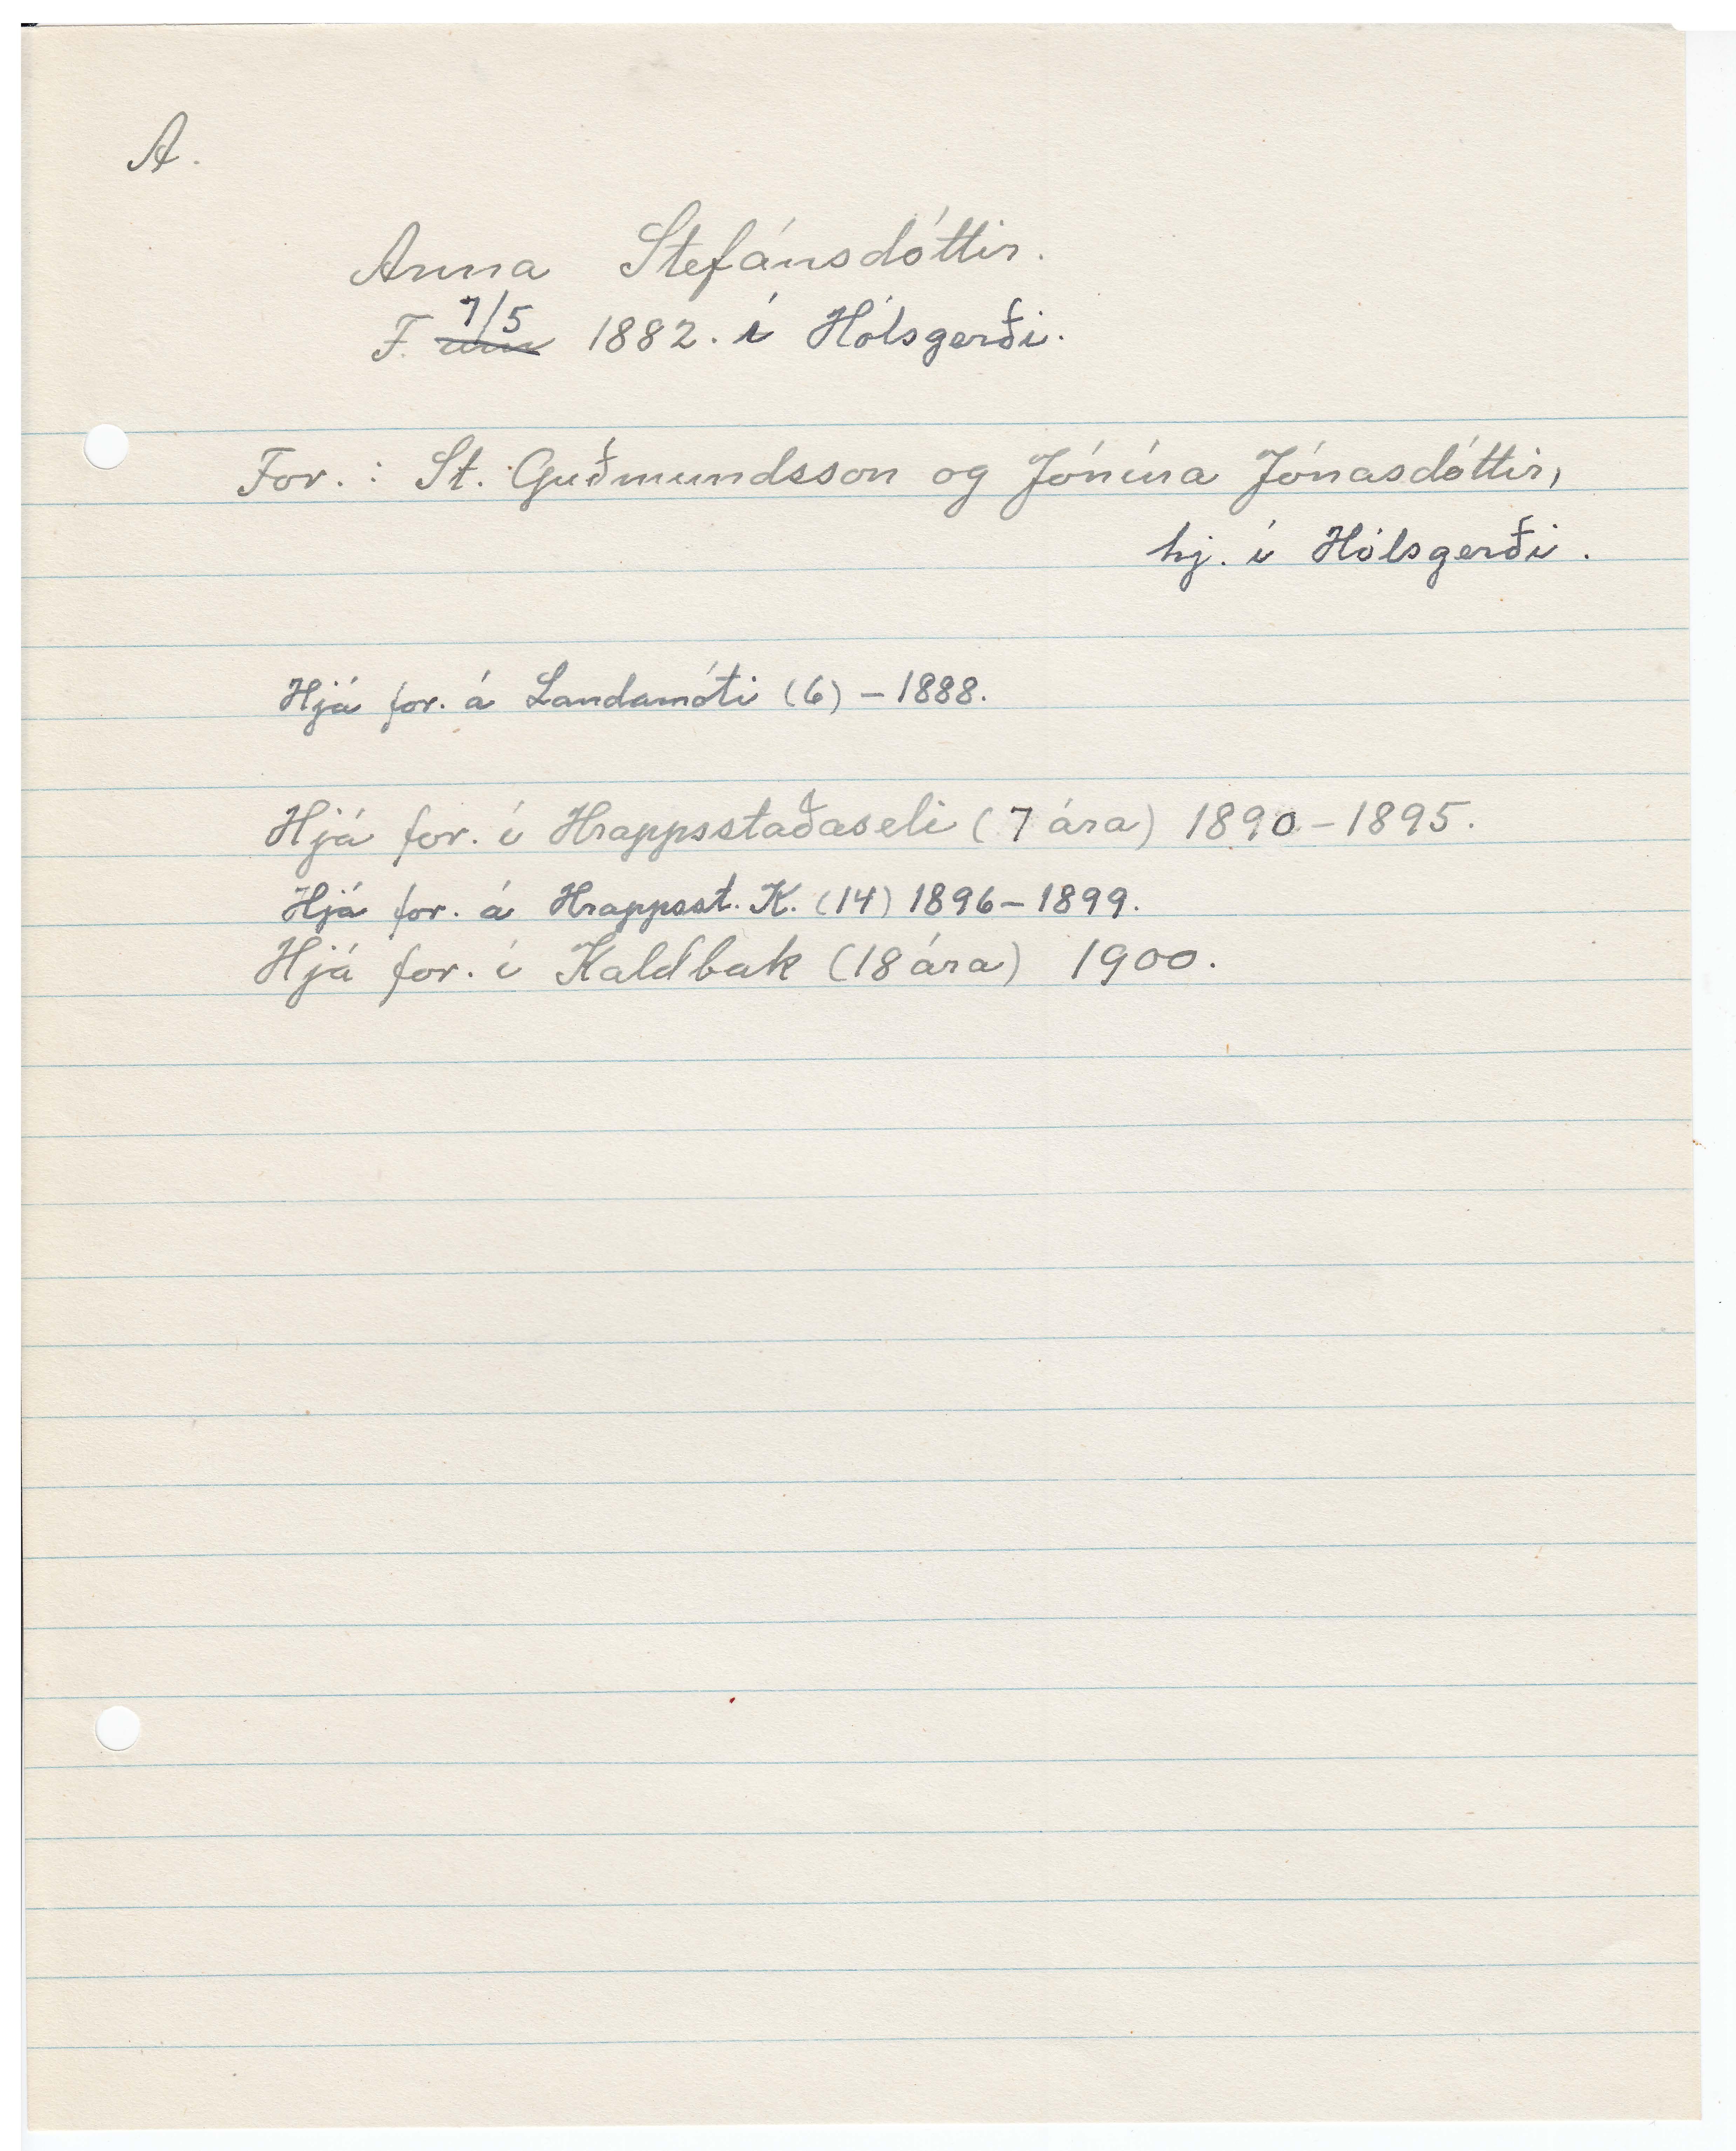 A.
Anna Stefánsdóttir.
F. um 7/5 1882. í Hólsgerði.
For. : St. Guðmundsson og Jónína Jónasdóttir,
hj. í Hólsgerði.
Hjá for. á Landamóti (6) – 1888.
Hjá for. í Hrappsstaðaseli (7 ára) 1890 – 1895.
Hjá for. á Hrappsst. K. (14) 1896 – 1899.
Hjá for. í Kaldbak (18 ára) 1900.